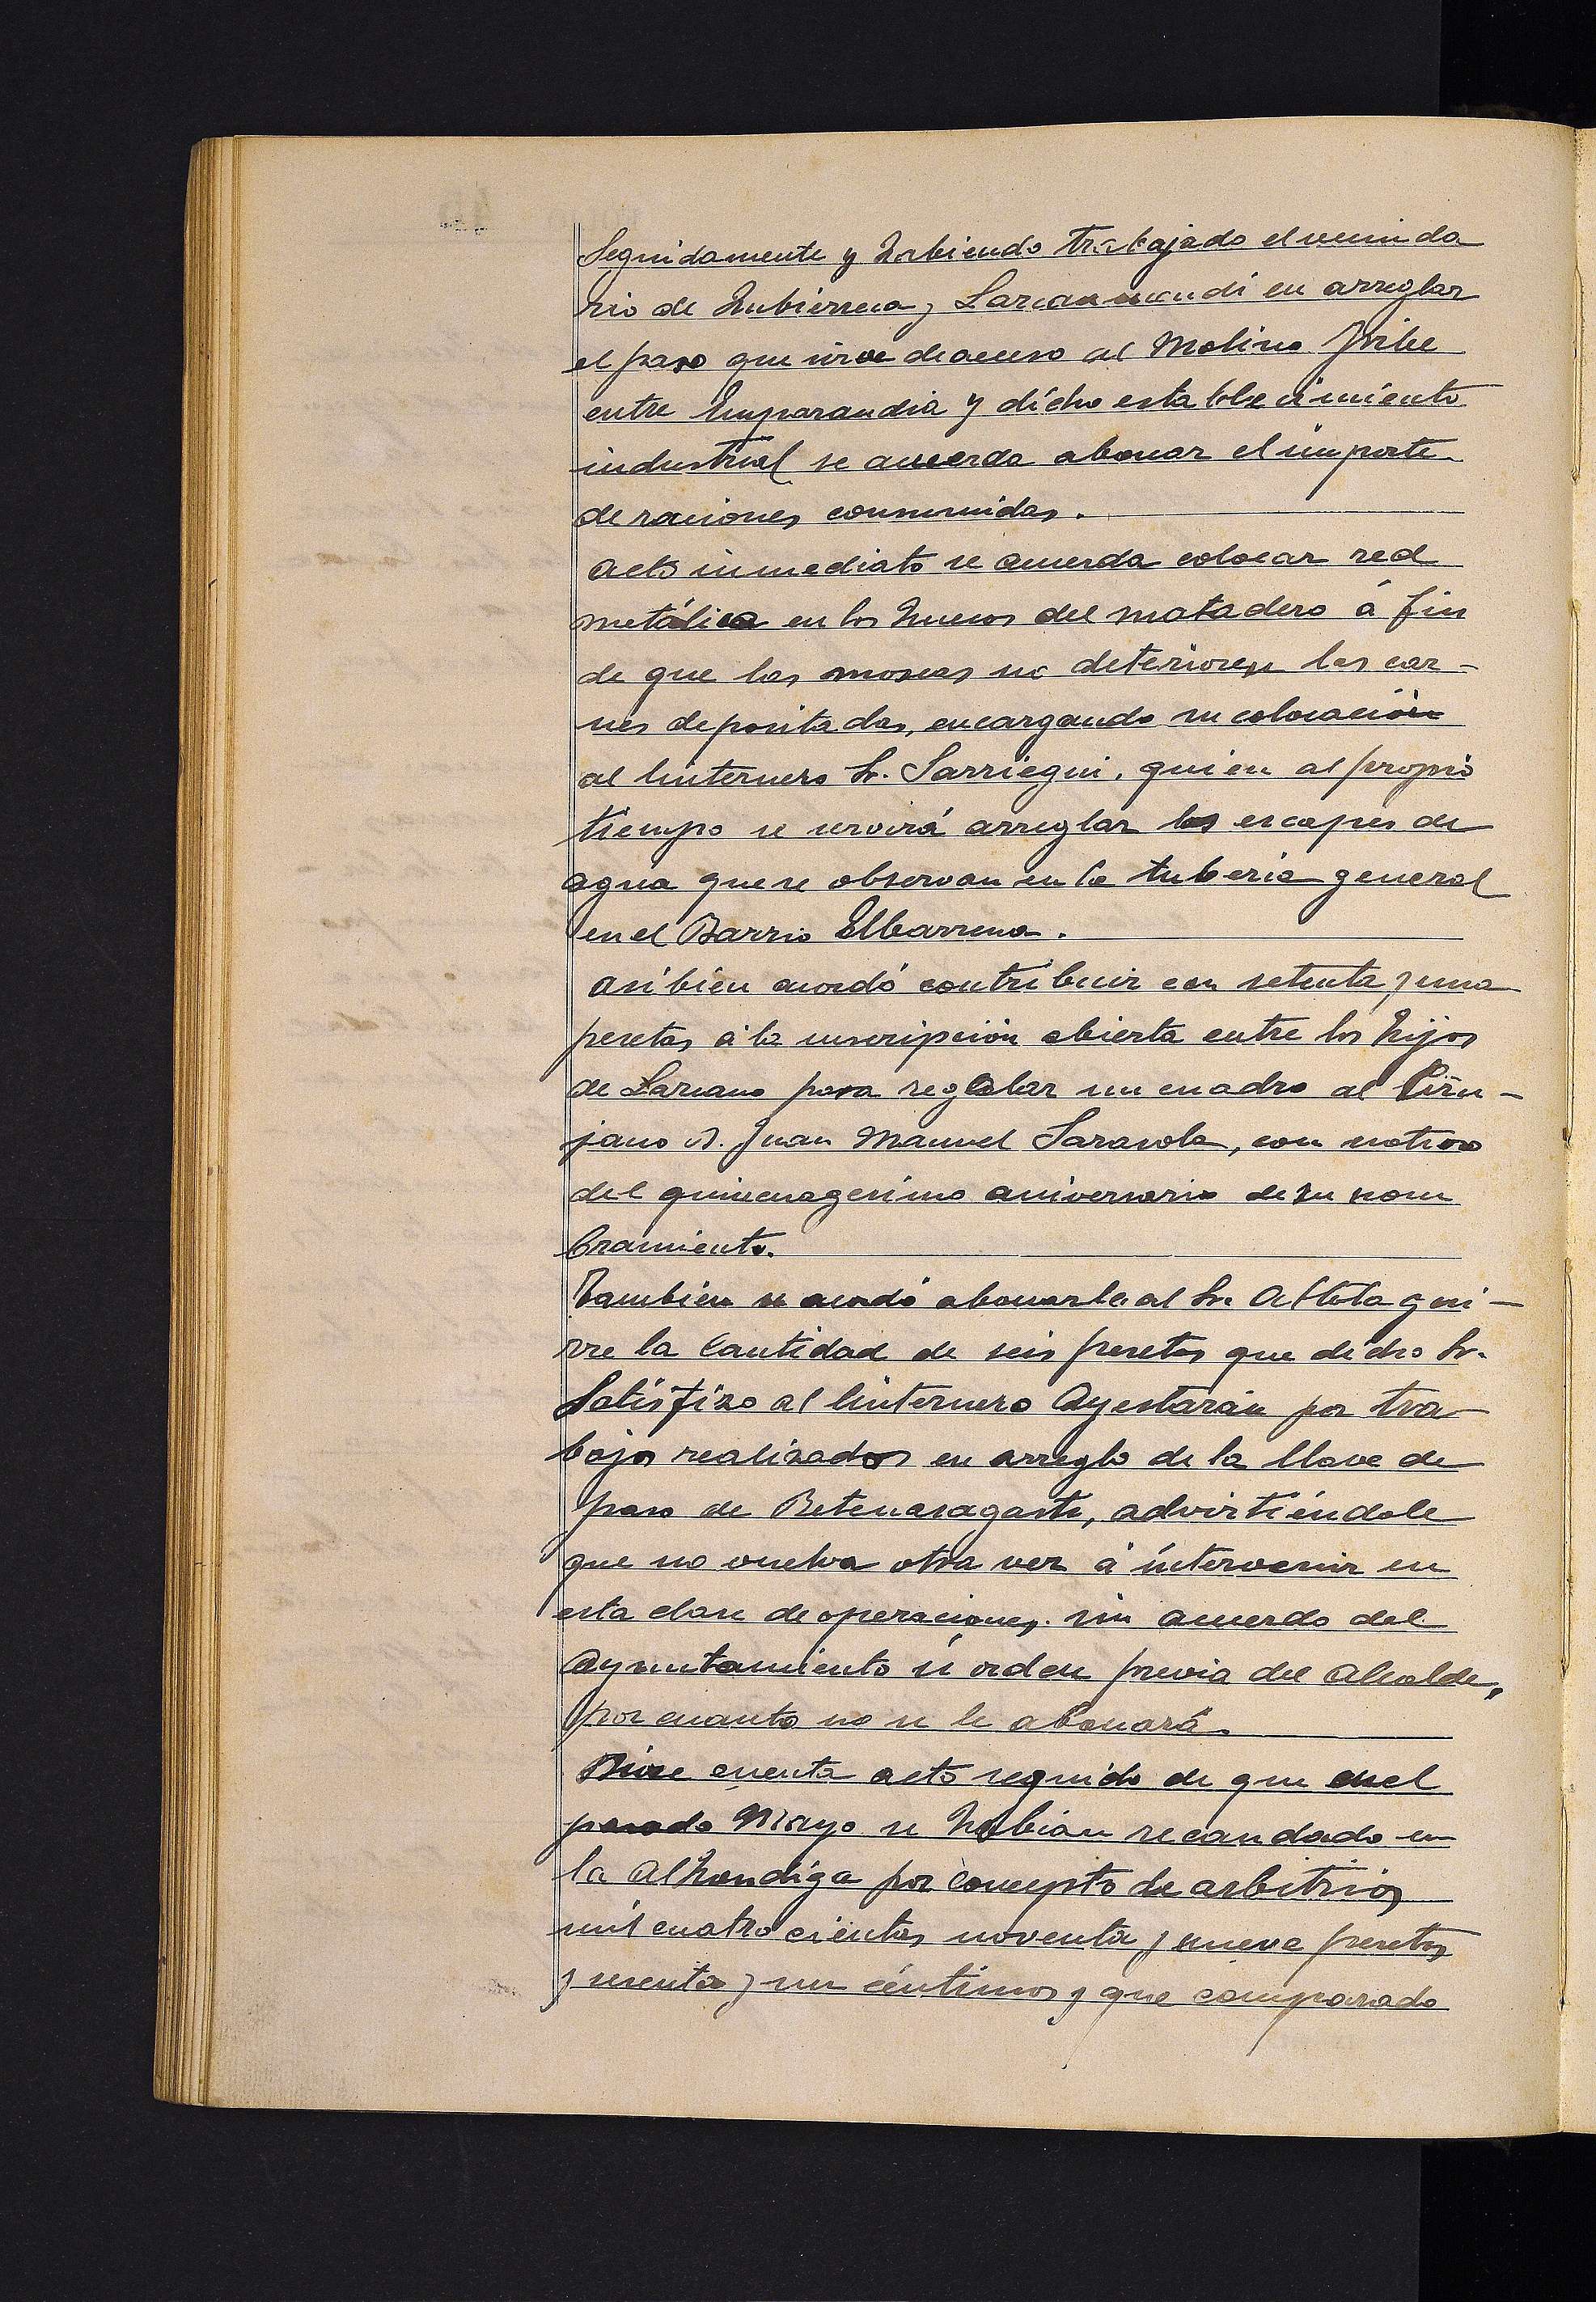 Seguidamente y habiendo trabajado el vecinda
rio de Zubierreca y Lazcanomendi en arreglar
el paso que sirve de acceso al Molino Iribe
entre Emparandia y dicho establecimiento
industrial se acuerda abonar el importe
de raciones consumidas.
Acto inmediato se acuerda colocar red
metálica en los huecos del matadero á fin
de que las moscas no deterioren las car-
nes depositadas, encargando su colocación
al linternero Sr. Sarriegui, quien al propio
tiempo se servirá arreglar los escapes de
agua que se observan en la tuberia general
en el Barrio Elbarrena.
Asi bien acordó contribuir con setenta y una
pesetas á la suscripción abierta entre los hijos
de Lazcano para regalar un cuadro al Ciru-
jano D. Juan Manuel Sarasola, con motivo
del quincuagesimo aniversario de su nom
bramiento.
Tambien se acordó abonarle al Sr. Albitagui-
rre la Cantidad de seis pesetas que dicho Sr.
Satisfizo al linternero Ayestarán por tra-
bajos realizados en arreglo de la llave de
paso de Betenasagasti, advirtiéndole
que no vuelva otra vez á intervenir en
esta clase de operaciones sin acuerdo del
Ayuntamiento ú orden previa del Alcalde,
por cuanto no se le abonará.
Dióse cuenta acto seguido de que en el
pasado Mayo se habian recaudado en
la Alhondiga por concepto de arbitrios
mil cuatrocientas noventa y nueve pesetas
y sesenta y un céntimos y que comparado